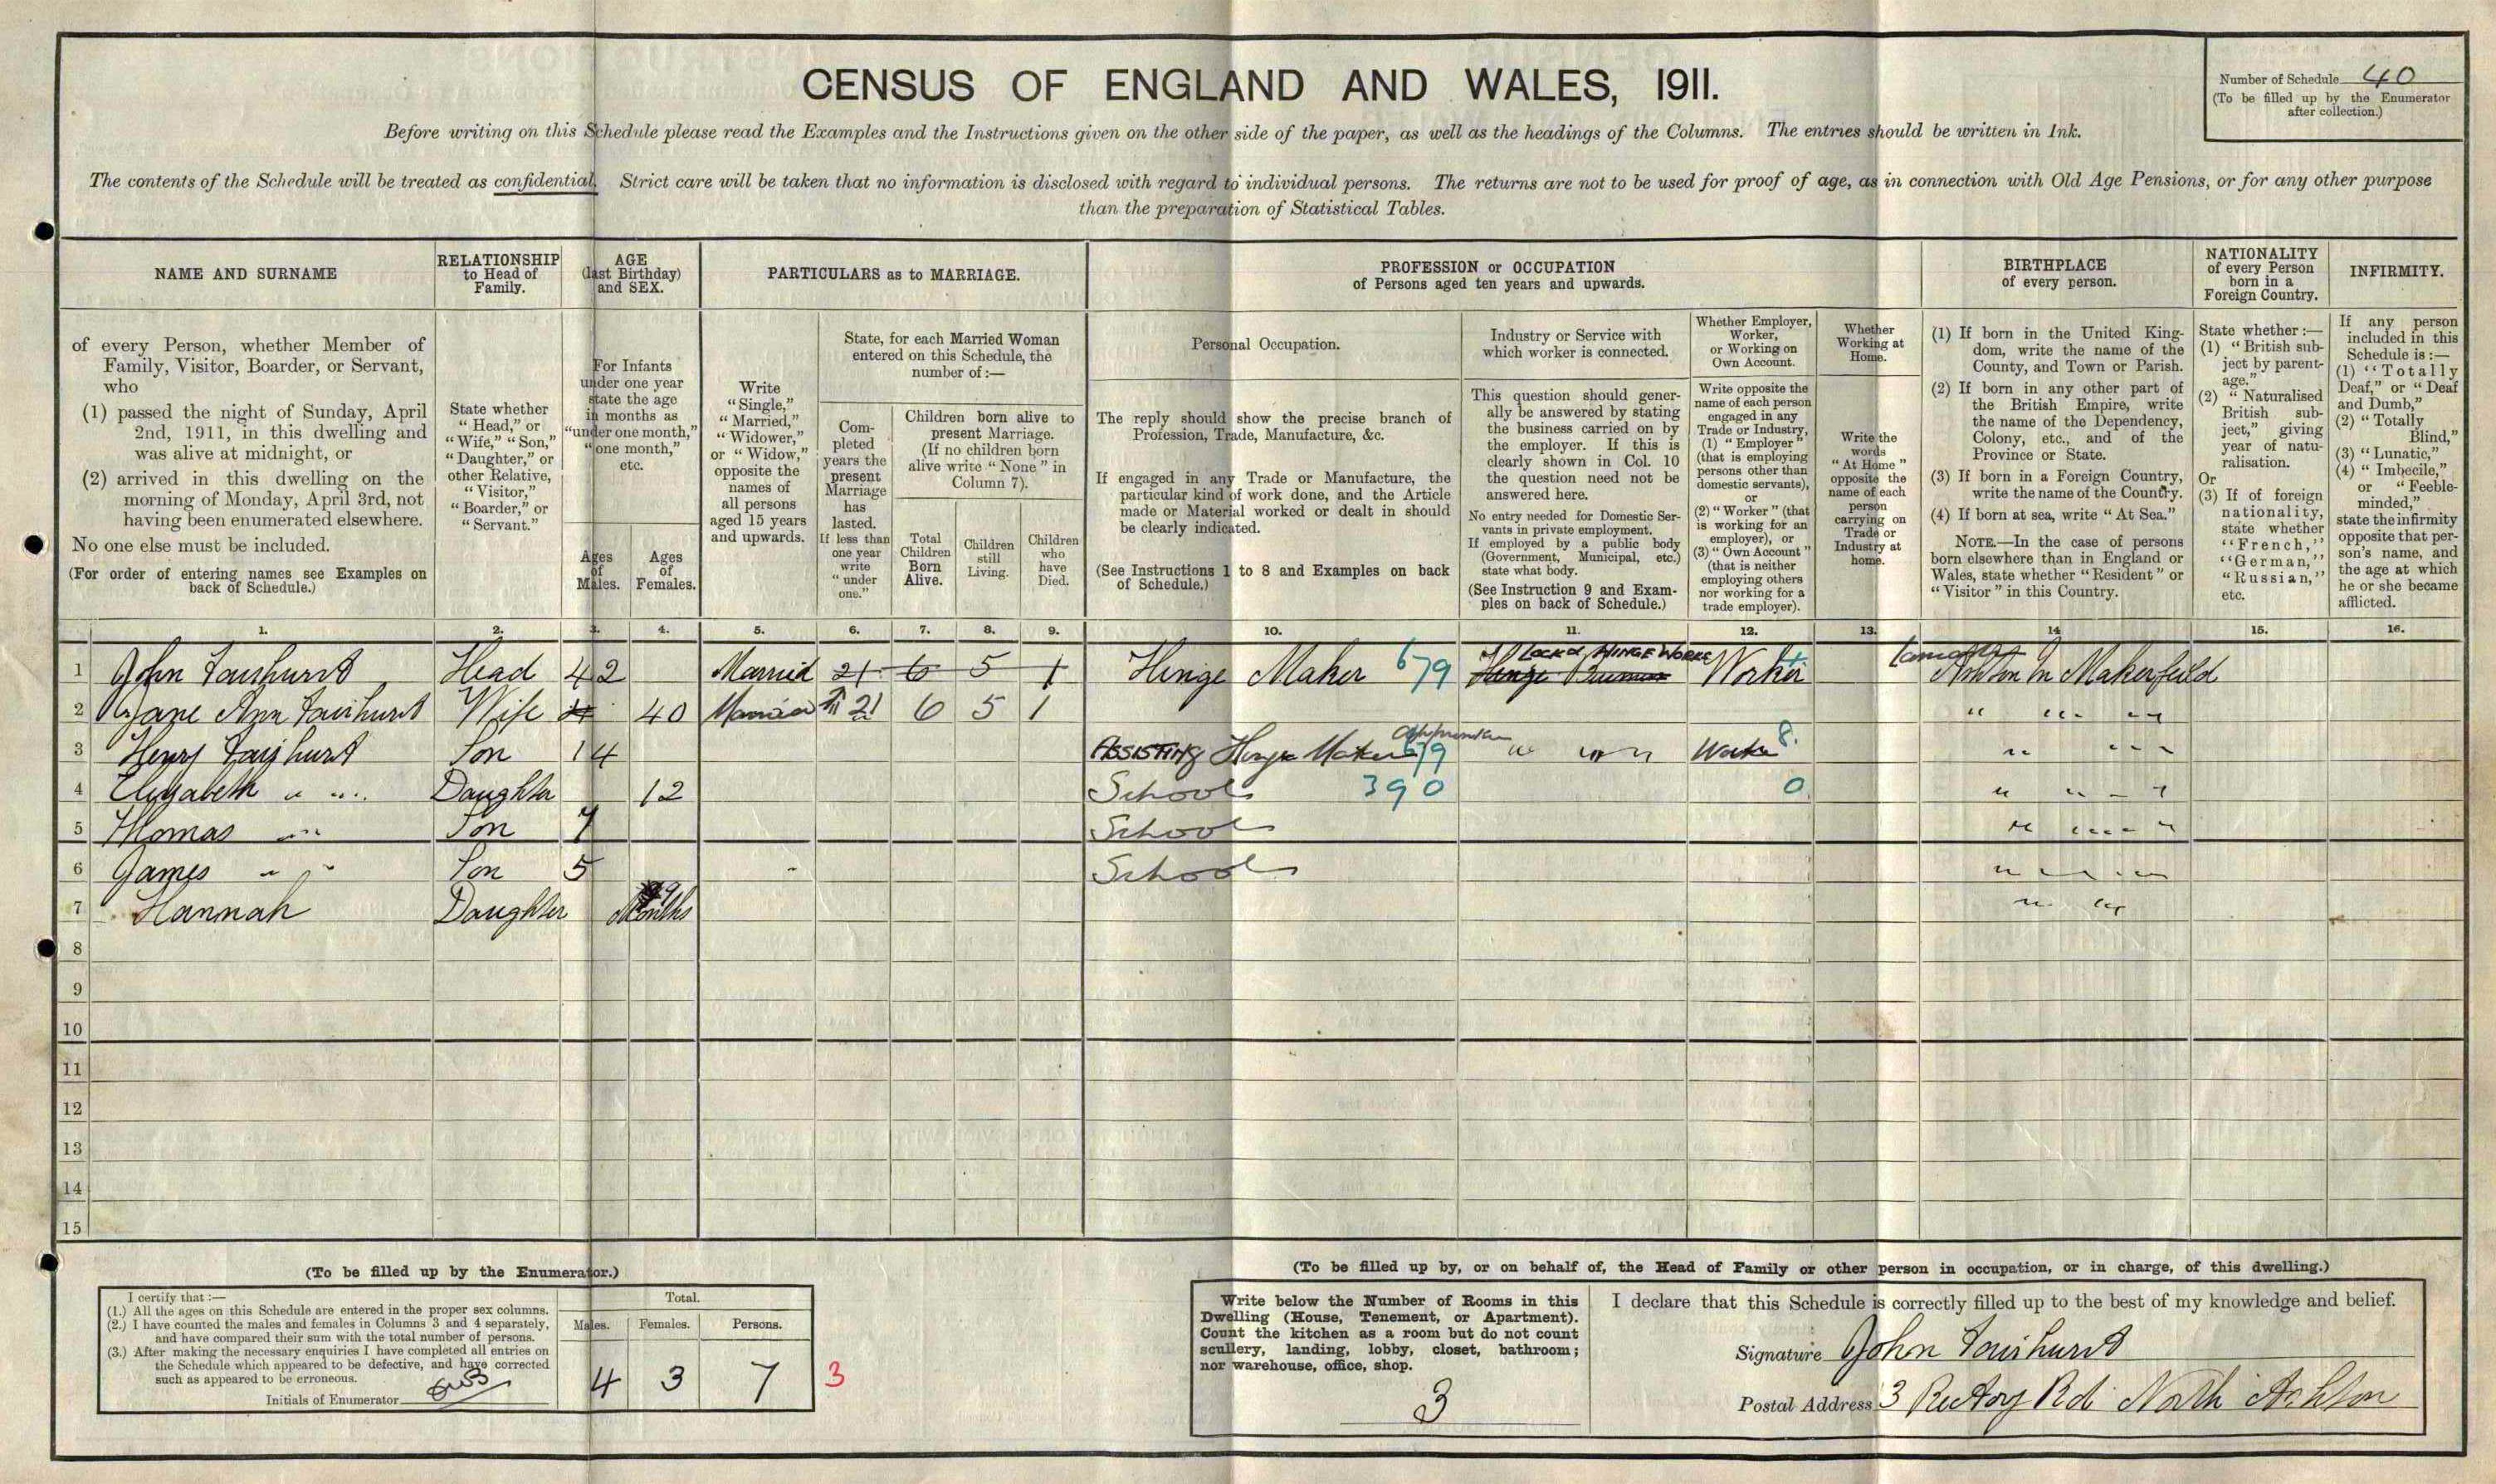 CENSUS OF ENGLAND AND WALES, 1911.
Number of Schedule 40
(To be filled up by the Enumerator
after collection.)
Before writing on this Schedule please read the Examples and the Instructions given on the other side of the paper, as well as the headings of the Columns. The entries should be written in Ink.
The contents of the Schedule will be treated as confidential. Strict care will be taken that no information is disclosed with regard to individual persons. The returns are not to be used for proof of age, as in connection with Old Age Pensions, or for any other purpose
than the preparation of Statistical Tables.
NAME AND SURNAME
of every Person, whether Member of
Family, Visitor, Boarder, or Servant,
who
(1) passed the night of Sunday, April
2nd, 1911, in this dwelling and
was alive at midnight, or
(2) arrived in this dwelling on the
morning of Monday, April 3rd, not
having been enumerated elsewhere.
No one else must be included.
(For order of entering names see Examples on
back of Schedule.)
RELATIONSHIP
to Head of
Family.
State whether
"Head," or
"Wife," "Son,"
"Daughter," or
other Relative,
"Visitor,"
"Boarder," or
"Servant."
AGE
(last Birthday)
and SEX.
For Infants
under one year
state the age
in months as
"under one month,"
"one month,"
etc.
Ages
of
Males.
Ages
of
Females.
PARTICULARS as to MARRIAGE.
Write
"Single,"
"Married,"
"Widower,"
or "Widow,"
opposite the
names of
all persons
aged 15 years
and upwards.
State, for each Married Woman
entered on this Schedule, the
number of :—
Com-
pleted
years the
present
Marriage
has
lasted.
If less than
one year
write
"under
one."
Children born alive to
present Marriage.
(If no children born
alive write "None" in
Column 7).
Total
Children
Born
Alive.
Children
still
Living.
Children
who
have
Died.
PROFESSION or OCCUPATION
of Persons aged ten years and upwards.
Personal Occupation.
The reply should show the precise branch of
Profession, Trade, Manufacture, &c.
If engaged in any Trade or Manufacture, the
particular kind of work done, and the Article
made or Material worked or dealt in should
be clearly indicated.
(See Instructions 1 to 8 and Examples on back
of Schedule.)
Industry or Service with
which worker is connected.
This question should gener-
ally be answered by stating
the business carried on by
the employer. If this is
clearly shown in Col. 10
the question need not be
answered here.
No entry needed for Domestic Ser-
vants in private employment.
If employed by a public body
(Government, Municipal, etc.)
state what body.
(See Instruction 9 and Exam-
ples on back of Schedule.)
Whether Employer,
Worker,
or Working on
Own Account.
Write opposite the
name of each person
engaged in any
Trade or Industry,
(1) "Employer"
(that is employing
persons other than
domestic servants),
or
(2) "Worker" (that
is working for an
employer), or
(3) "Own Account"
(that is neither
employing others
nor working for a
trade employer).
Whether
Working at
Home.
Write the
words
"At Home"
opposite the
name of each
person
carrying on
Trade or
Industry at
home.
BIRTHPLACE
of every person.
(1) If born in the United King-
dom, write the name of the
County, and Town or Parish.
(2) If born in any other part of
the British Empire, write
the name of the Dependency,
Colony, etc., and of the
Province or State.
(3) If born in a Foreign Country,
write the name of the Country.
(4) If born at sea, write "At Sea."
NOTE.—In the case of persons
born elsewhere than in England or
Wales, state whether "Resident" or
"Visitor" in this Country.
NATIONALITY
of every Person
born in a
Foreign Country.
State whether :—
(1) "British sub-
ject by parent-
age."
(2) "Naturalised
British sub-
ject," giving
year of natu-
ralisation.
Or
(3) If of foreign
nationality,
state whether
"French,"
"German,"
"Russian,"
etc.
INFIRMITY.
If any person
included in this
Schedule is :—
(1) "Totally
Deaf," or "Deaf
and Dumb,"
(2) "Totally
Blind,"
(3) "Lunatic,"
(4) "Imbecile,"
or "Feeble-
minded,"
state the infirmity
opposite that per-
son's name, and
the age at which
he or she became
afflicted.
1. 2. 3. 4. 5. 6. 7. 8. 9. 10. 11. 12. 13. 14 15. 16.
1 John Fairhurst Head 42 Married 21 6 5 1 Hinge Maker 679 LOCK & HINGE WORKS Worker Ashton In Makerfeild
2 Jane Ann Fairhurst Wife 40 Married 21 6 5 1 " " "
3 Henry Fairhurst Son 14 ASSISTING Hinge Maker 679 " " " Worker 8. " "
4 Elizabeth " " Daughter 12 School 390 0 " " "
5 Thomas " Son 7 School " " "
6 James " " Son 5 School " " "
7 Hannah Daughter 9 Months " "
8
9
10
11
12
13
14
15
(To be filled up by the Enumerator.)
I certify that :—
(1.) All the ages on this Schedule are entered in the proper sex columns.
(2.) I have counted the males and females in Columns 3 and 4 separately,
and have compared their sum with the total number of persons.
(3.) After making the necessary enquiries I have completed all entries on
the Schedule which appeared to be defective, and have corrected
such as appeared to be erroneous.
Initials of Enumerator
Total.
Males. Females. Persons.
4 3 7 3
(To be filled up by, or on behalf of, the Head of Family or other person in occupation, or in charge, of this dwelling.)
Write below the Number of Rooms in this
Dwelling (House, Tenement, or Apartment).
Count the kitchen as a room but do not count
scullery, landing, lobby, closet, bathroom;
nor warehouse, office, shop.
3
I declare that this Schedule is correctly filled up to the best of my knowledge and belief.
Signature John Fairhurst
Postal Address 3 Rectory Rd North Ashton